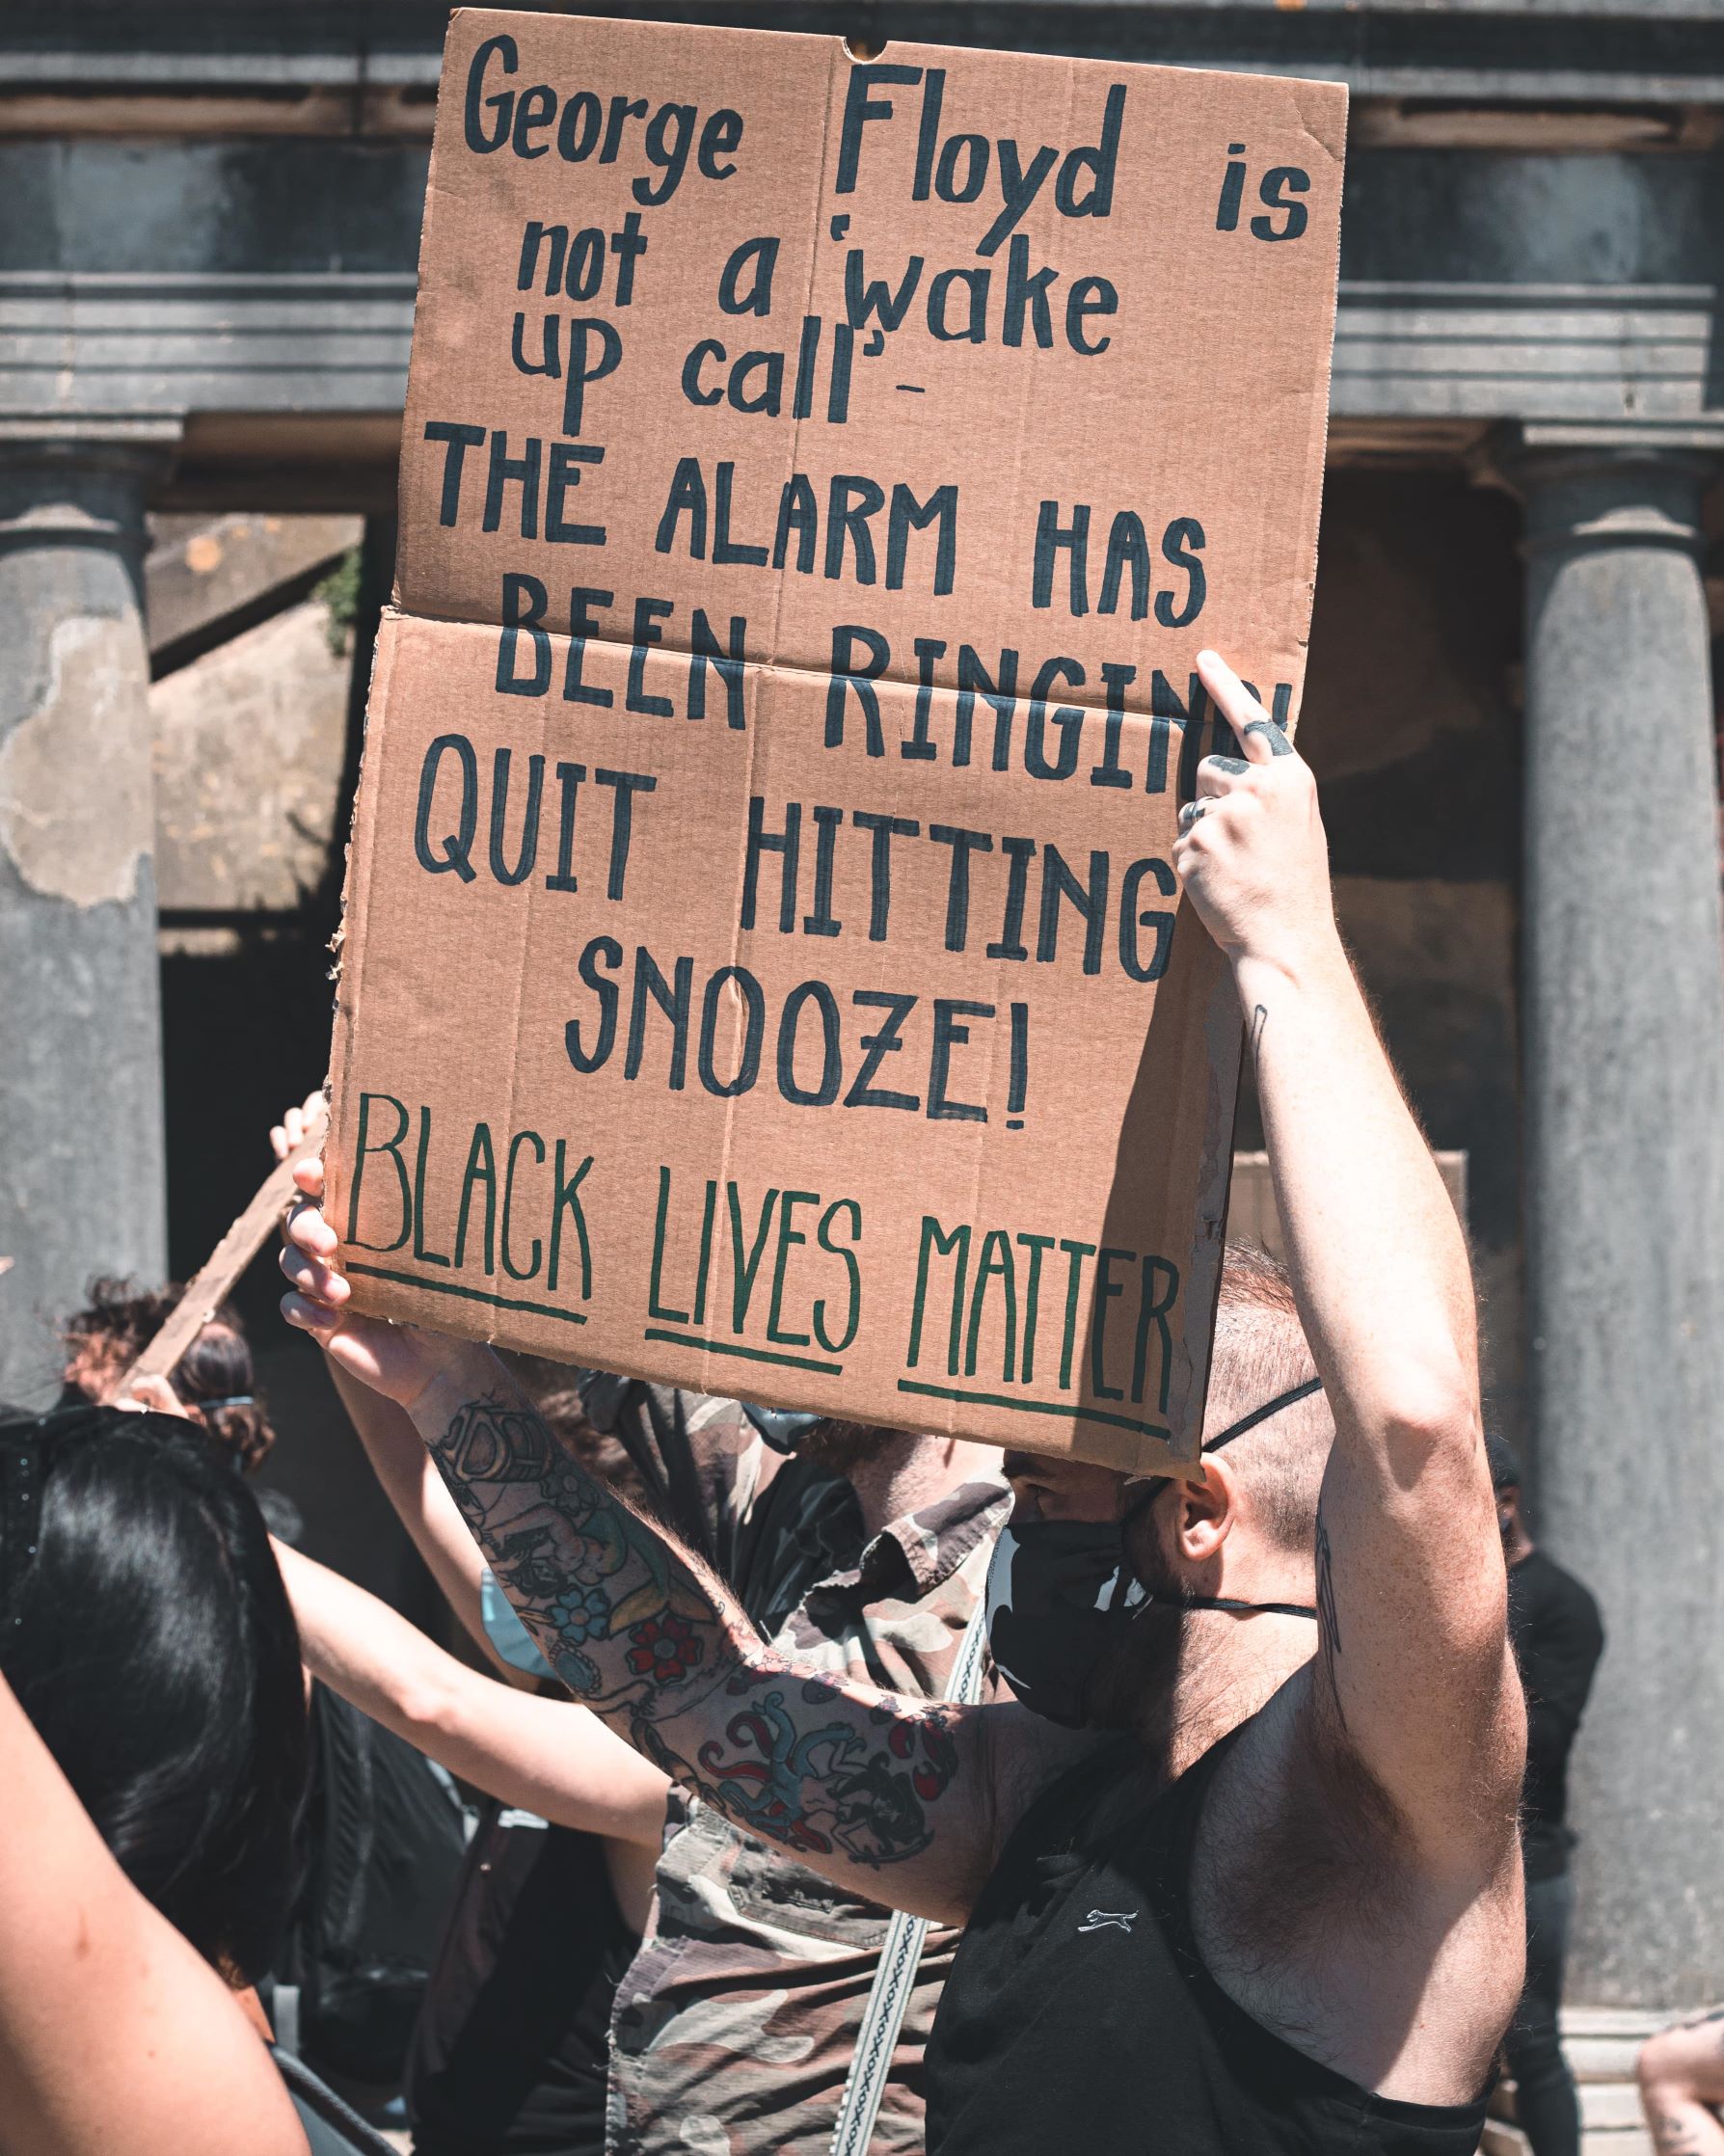 George Floyd is
not a 'wake
up call' -
THE ALARM HAS
BEEN RINGING!
QUIT HITTING
SNOOZE!
BLACK LIVES MATTER